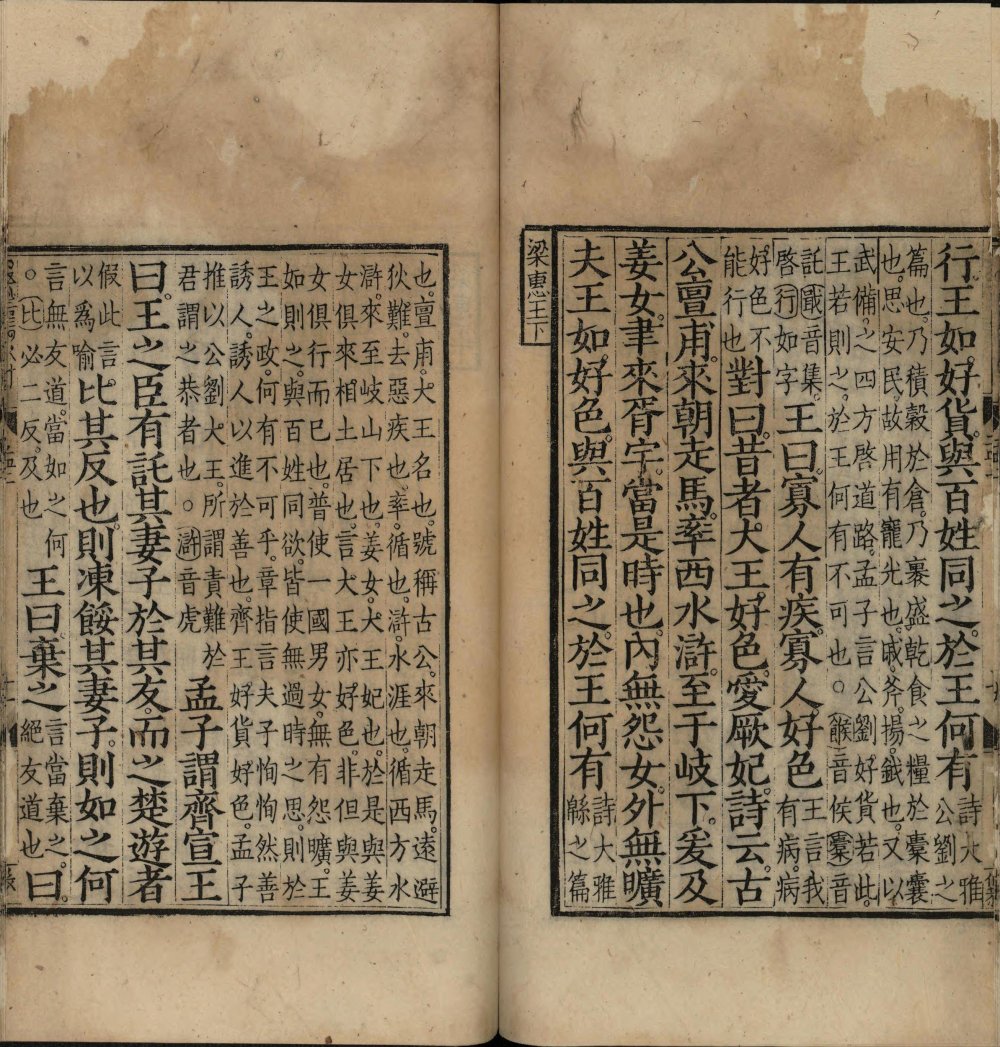 行王如好貨與百姓同之於王何有詩大雅
公劉之
篇也乃積穀於倉乃裹盛乾食之糧於橐囊
也思安民故用有寵光也戚斧揚鉞也又以
武備之四方啓道路孟子言公劉好貨若此
王若則之於王何有不可也○餱音侯橐音
託戢音集
啓行如字
王曰寡人有疾寡人好色王言我
有病病
好色不
能行也
對曰昔者大王好色愛厥妃詩云古
公亶甫來朝走馬率西水滸至于岐下爰及
姜女聿來胥宇當是時也內無怨女外無曠
夫王如好色與百姓同之於王何有詩大雅
緜之篇
梁惠王下
也亶甫大王名也號稱古公來朝走馬遠避
狄難去惡疾也率循也滸水涯也循西方水
滸來至岐山下也姜女大王妃也於是與姜
女俱來相土居也言大王亦好色非但與姜
女俱行而已也普使一國男女無有怨曠王
如則之與百姓同欲皆使無過時之思則於
王之政何有不可乎章指言夫子恂恂然善
誘人誘人以進於善也齊王好貨好色孟子
推以公劉大王所謂責難於
君謂之恭者也○滸音虎
孟子謂齊宣王
曰王之臣有託其妻子於其友而之楚遊者
假此言
以爲喻
比其反也則凍餒其妻子則如之何
言無友道當如之何
○比必二反及也
王曰棄之言當棄之
絕友道也
曰